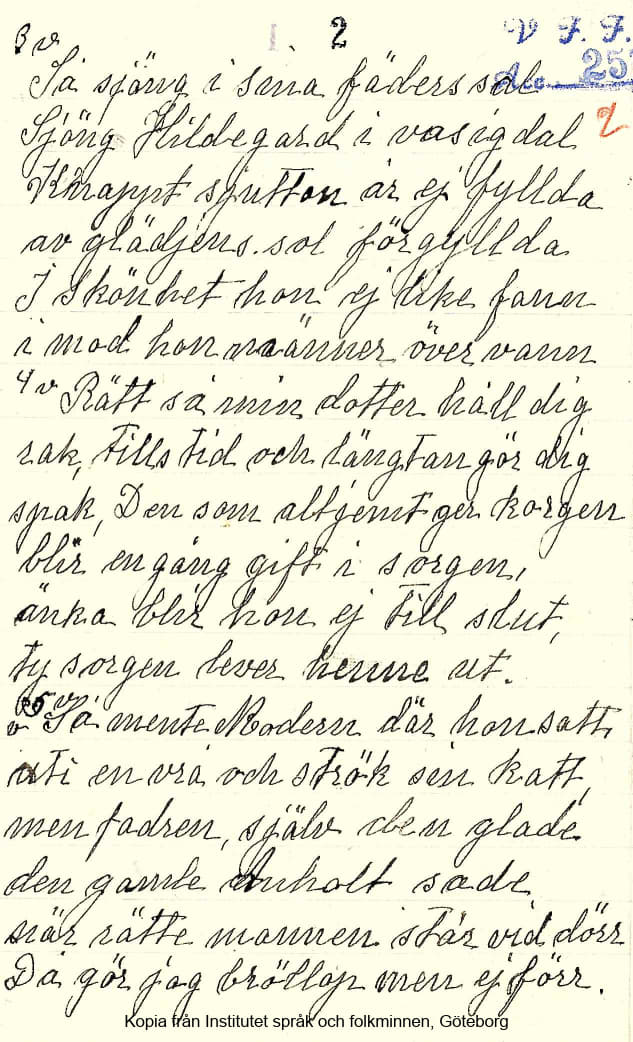 2
3 v
V. F. F.
Acc. 25
2
Så sjöng i sina fäders sal
Sjöng Hildegard i vasigdal
Knappt sjutton år ej fyllda
av glädjens sol förgyllda
I skönhet hon ej like fann
i mod hon männer över vann
4 v Rätt så min dotter håll dig
rak, tills tid och längtan gör dig
spak, Den som altjemt ger korgen
blir en gång gift i sorgen,
änka blir hon ej till slut,
ty sorgen lever henne ut.
5 v Så mente Modern där hon satt
uti en vrå och strök sin katt,
men fadren, själv den glade
den gamle Anholt sade
när rätte mannen står vid dörr
Då gör jag bröllop men ej förr.
Kopia från Institutet språk och folkminnen, Göteborg